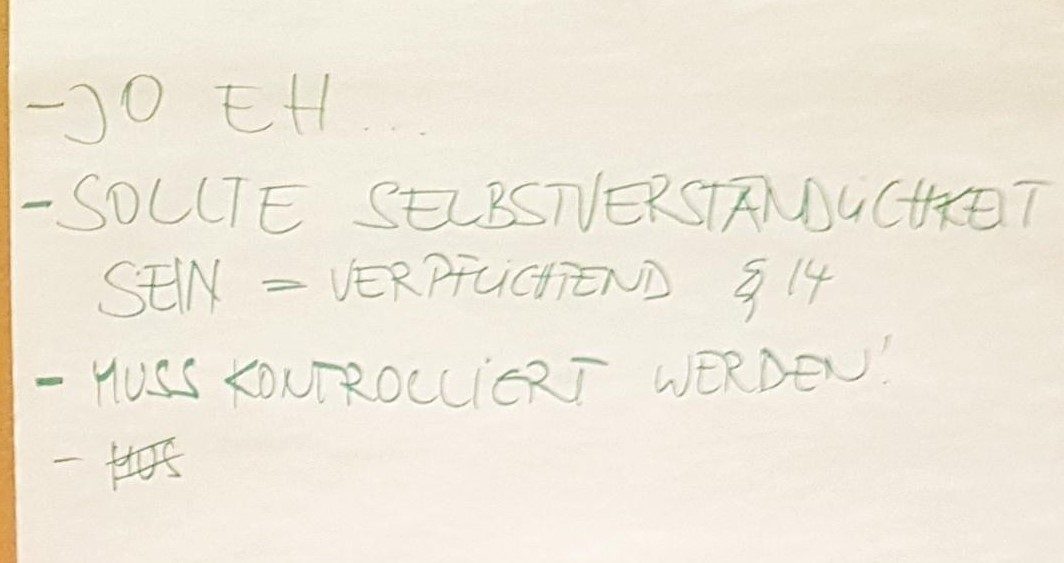 - JO EH ...
- SOLLTE SELBSTVERSTÄNDLICHKEIT
SEIN = VERPFLICHTEND § 14
- MUSS KONTROLLIERT WERDEN!
-